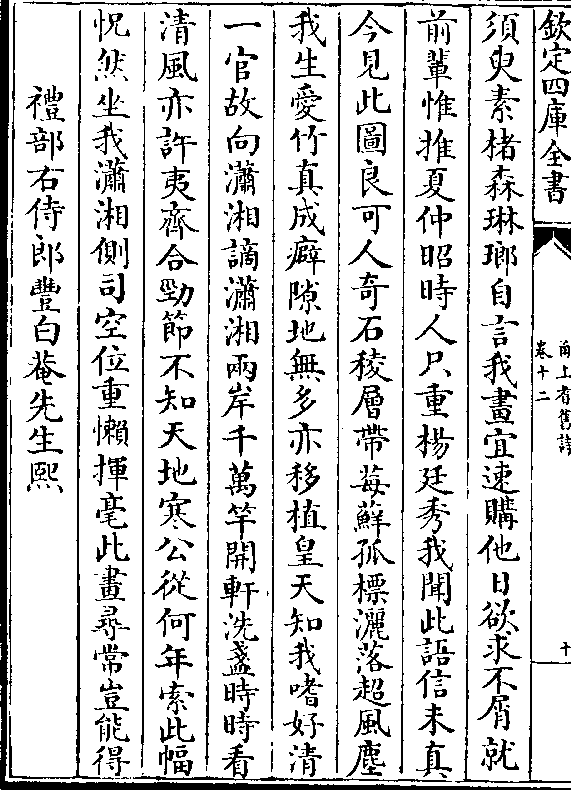 欽定四庫全書
甬上耆舊詩
卷十二
十
須臾素楮森琳瑯自言我畫宜速購他日欲求不屑就
前輩惟推夏仲昭時人只重楊廷秀我聞此語信未真
今見此圖良可人奇石稜層帶莓蘚孤標灑落超風塵
我生愛竹真成癖隙地無多亦移植皇天知我嗜好清
一官故向瀟湘謫瀟湘兩岸千萬竿開軒洗盞時時看
清風亦許夷齊合勁節不知天地寒公從何年索此幅
怳然坐我瀟湘側司空位重懶揮毫此畫尋常豈能得
禮部右侍郎豐白菴先生熙